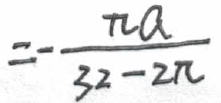 = - \frac{\pi a}{32 - 2\pi}